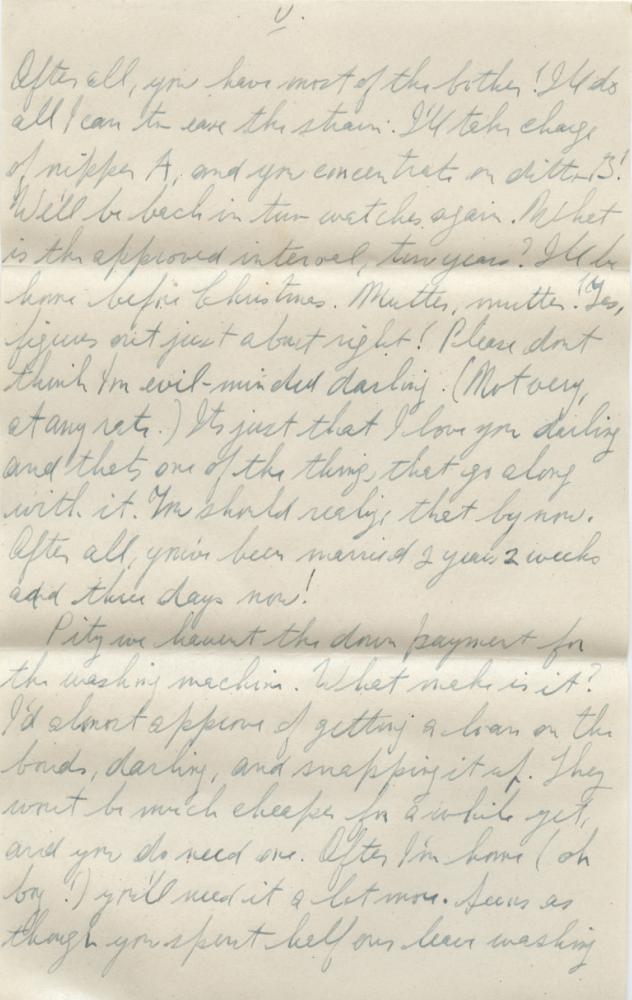 V.
After all, you have most of the bother! I'll do
all I can to ease the strain. I'll take charge
of nipper A, and you concentrate on ditto B!
We'll be back in two watches again. What
is the approved interval, two years? I'll be
home before Christmas. Mutter, mutter! Yes,
figures out just about right! Please dont
think I'm evil-minded darling. (Not very,
at any rate.) Its just that I love you darling
and thats one of the things that go along
with it. You should realize that by now.
After all, you've been married 2 years 2 weeks
and three days now!
Pity we havent the down payment for
the washing machine. What make is it?
I'd almost approve of getting a loan on the
bonds, darling, and snapping it up. They
wont be much cheaper for a while yet,
and you do need one. After I'm home (oh
boy!) you'll need it a lot more. Seems as
though you spent half our leave washing